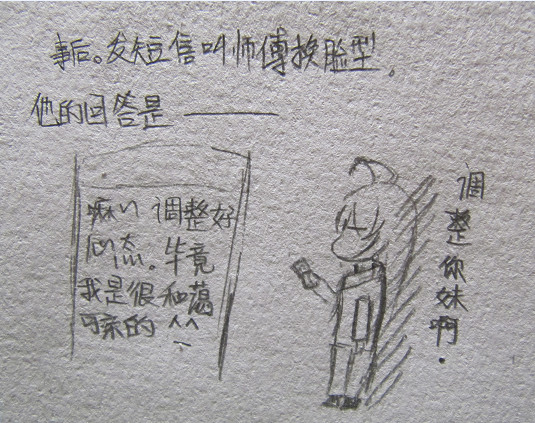 事后。发短信叫师傅换脸型.
他的回答是——
嘛ヽヽ 调整好
心态. 毕竟
我是很和蔼
可亲的 ^_^
调整你妹啊.